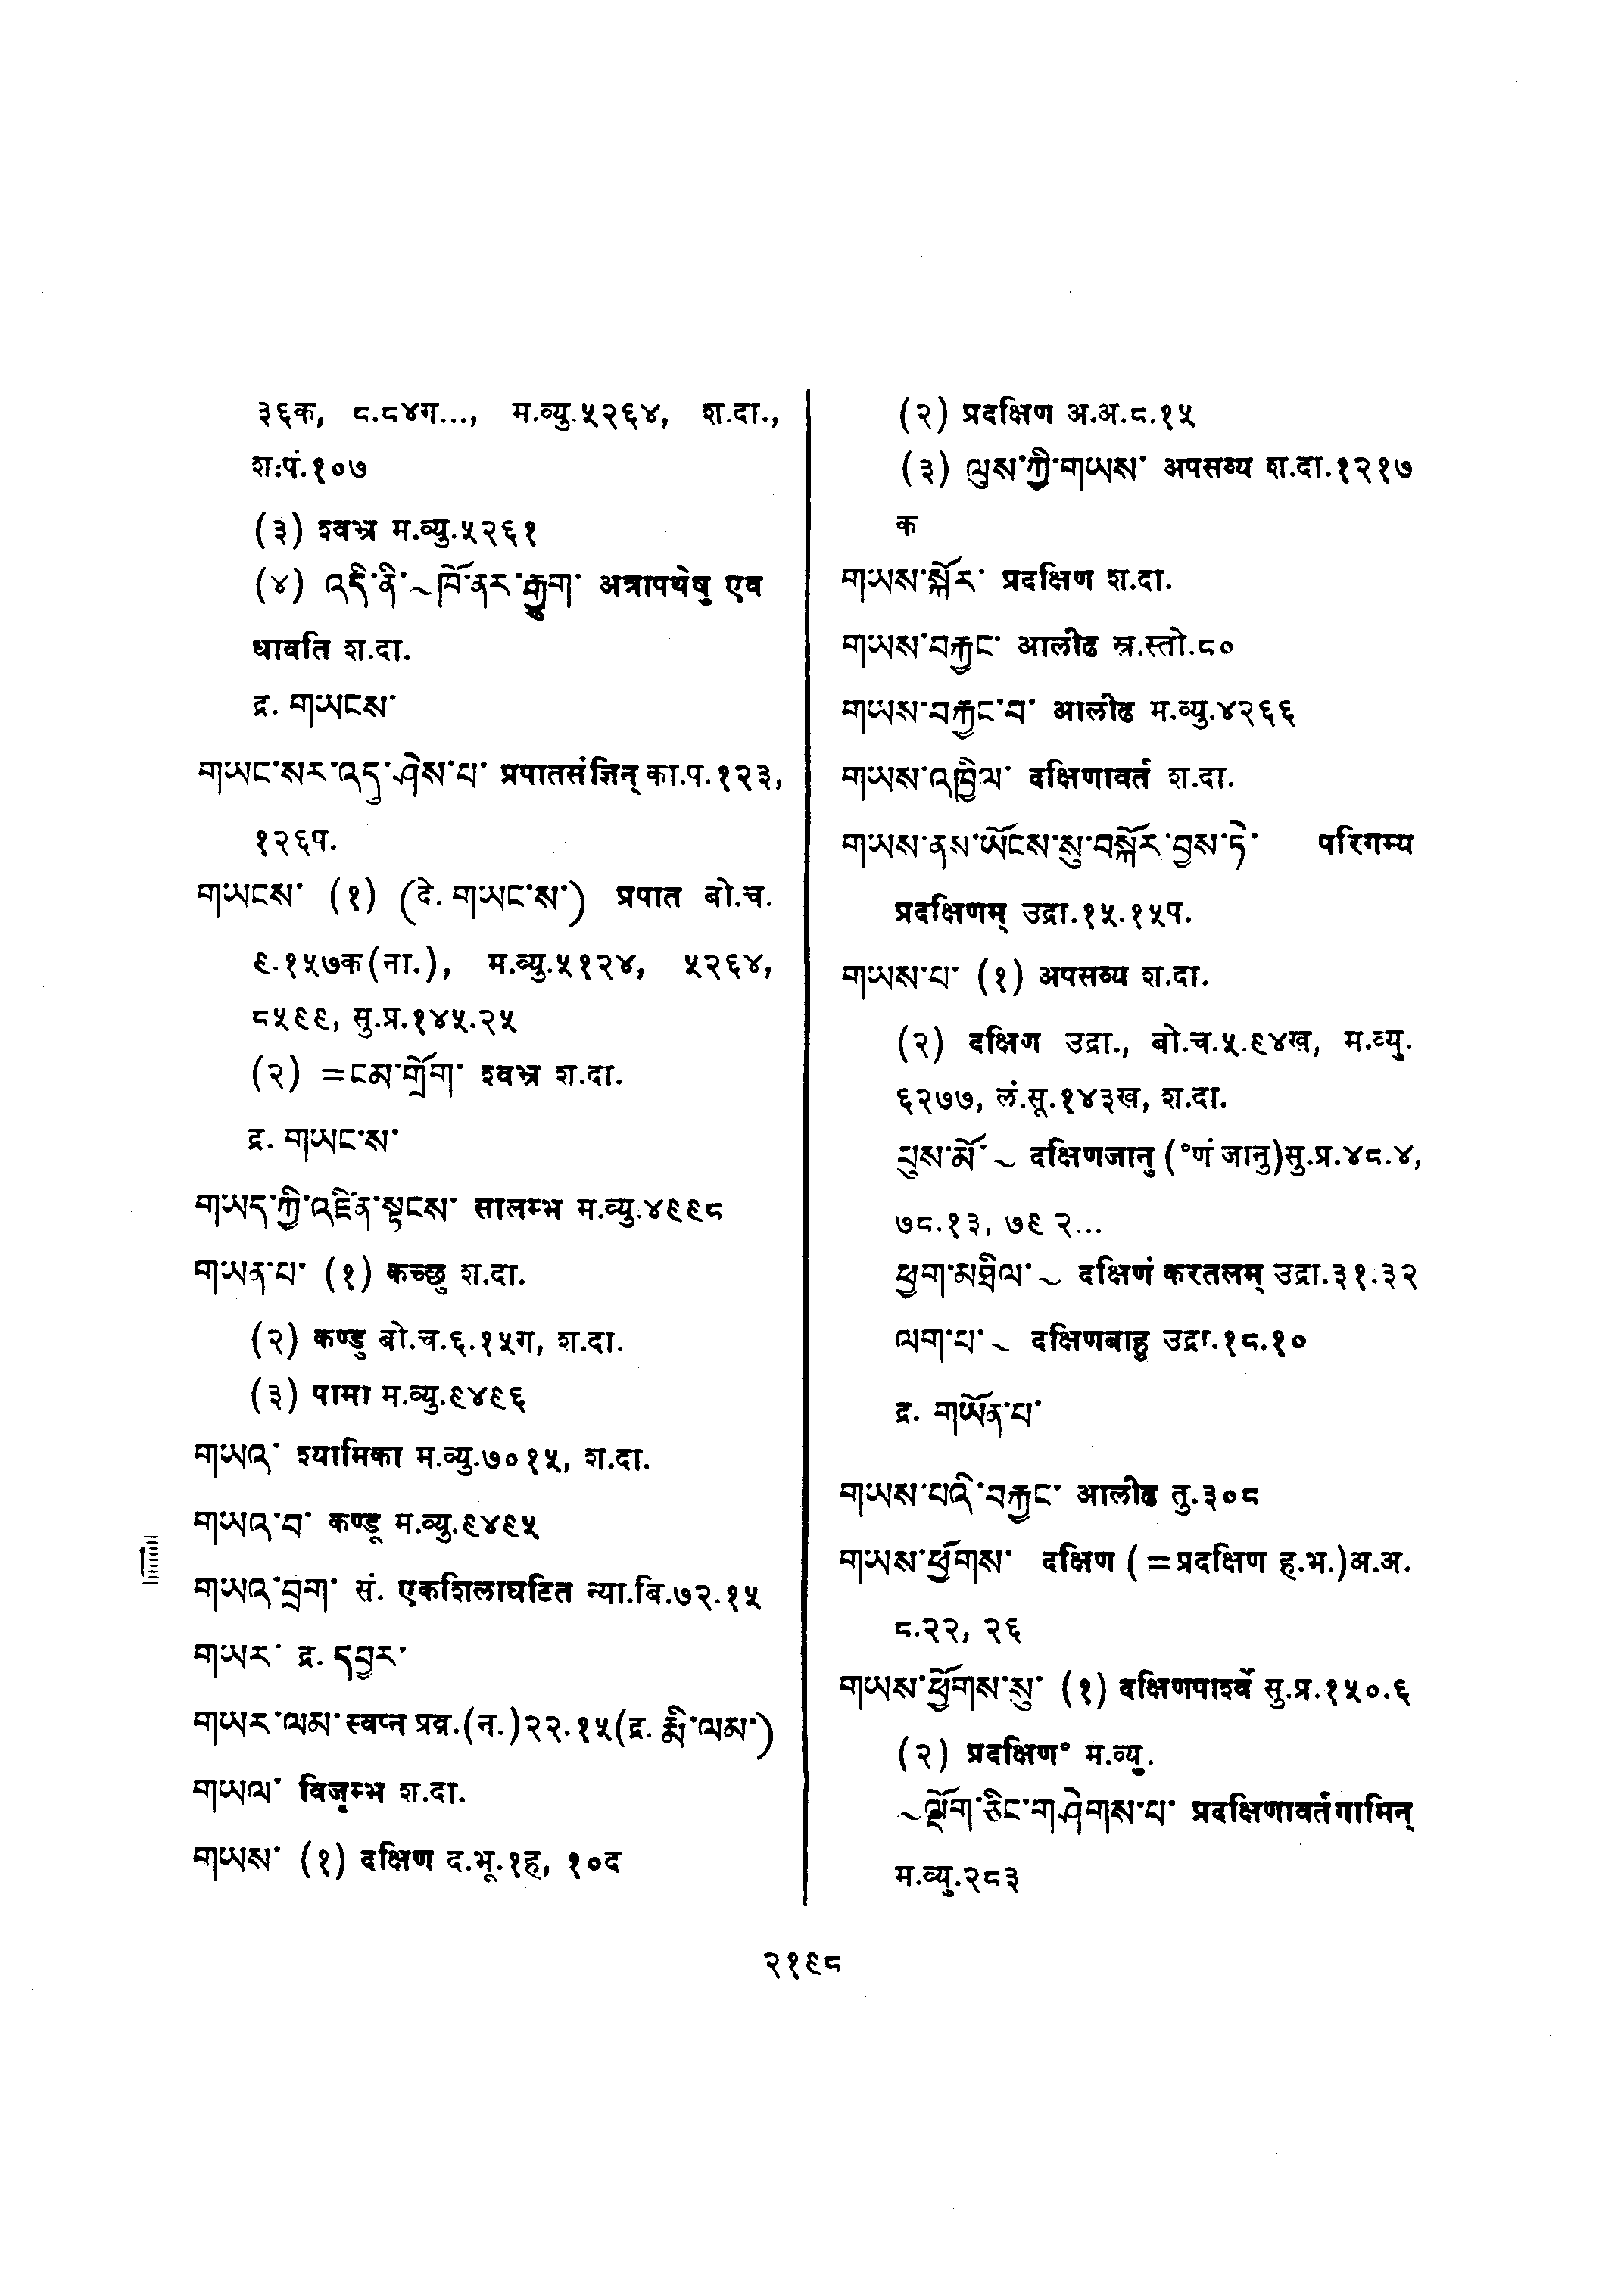 ३६क, ८.८४ग..., म.व्यु.५२६४, श.दा.,
श.पं.१०७
(३) श्वभ्र म.व्यु.५२६१
(४) འདི་ནི་~ཁོ་ནར་རྒྱུག་ अत्रापथेषु एव
धावति श.दा.
द्र. གཡངས་
གཡང་སར་འདུ་ཤེས་པ་ प्रपातसंज्ञिन् का.प.१२३,
१२६प.
གཡངས་ (१) (दे. གཡང་ས་) प्रपात बो.च.
९.१५७क(ना.), म.व्यु.५१२४, ५२६४,
८५९९, सु.प्र.१४५.२५
(२) =ངམ་གྲོག་ श्वभ्र श.दा.
द्र. གཡང་ས་
གཡད་ཀྱི་འཛིན་སྟངས་ सालम्भ म.व्यु.४९९८
གཡན་པ་ (१) कच्छु श.दा.
(२) कण्डु बो.च.६.१५ग, श.दा.
(३) पामा म.व्यु.९४९६
གཡའ་ श्यामिका म.व्यु.७०१५, श.दा.
གཡའ་བ་ कण्डू म.व्यु.९४९५
གཡའ་བྲག་ सं. एकशिलाघटित न्या.बि.७२.१५
གཡར་ द्र. དབྱར་
གཡར་ལམ་ स्वप्न प्रव्र.(न.)२२.१५(द्र. རྨི་ལམ་)
གཡལ་ विजृम्भ श.दा.
གཡས་ (१) दक्षिण द.भू.१ह, १०द
(२) प्रदक्षिण अ.अ.८.१५
(३) ལུས་ཀྱི་གཡས་ अपसव्य श.दा.१२१७
क
གཡས་སྐོར་ प्रदक्षिण श.दा.
གཡས་བརྐྱང་ आलीढ स्र.स्तो.८०
གཡས་བརྐྱང་བ་ आलीढ म.व्यु.४२६६
གཡས་འཁྱིལ་ दक्षिणावर्त श.दा.
གཡས་ནས་ཡོངས་སུ་བསྐོར་བྱས་ཏེ་ परिगम्य
प्रदक्षिणम् उद्रा.१५.१५प.
གཡས་པ་ (१) अपसव्य श.दा.
(२) दक्षिण उद्रा., बो.च.५.९४ख, म.व्यु.
६२७७, लं.सू.१४३ख, श.दा.
པུས་མོ་~ दक्षिणजानु (°णं जानु)सु.प्र.४८.४,
७८.१३, ७९ २...
ཕྱག་མཐིལ་~ दक्षिणं करतलम् उद्रा.३१.३२
ལག་པ་~ दक्षिणबाहु उद्रा.१८.१०
द्र. གཡོན་པ་
གཡས་པའི་བརྐྱང་ आलीढ तु.३०८
གཡས་ཕྱོགས་ दक्षिण (=प्रदक्षिण ह.भ.)अ.अ.
८.२२, २६
གཡས་ཕྱོགས་སུ་ (१) दक्षिणपार्श्वे सु.प्र.१५०.६
(२) प्रदक्षिण° म.व्यु.
~ལྡོག་ཅིང་གཤེགས་པ་ प्रदक्षिणावर्तगामिन्
म.व्यु.२८३
२१९८